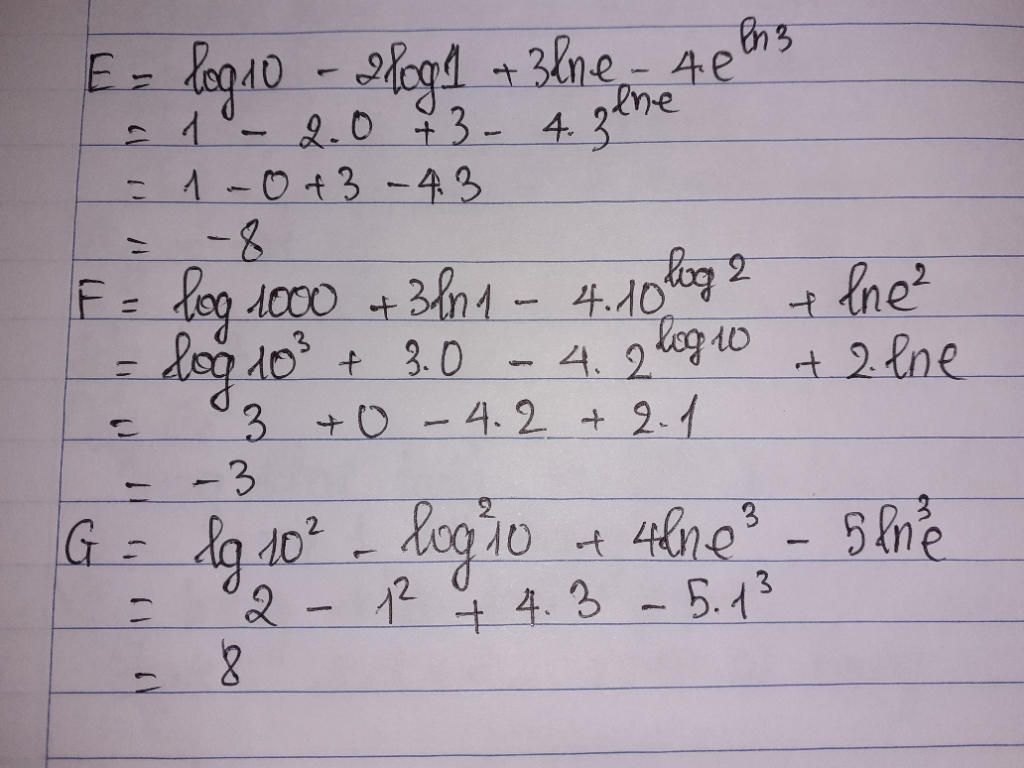 E = log10 - 2log1 + 3lne - 4.e^ln3
= 1 - 2.0 + 3 - 4.3^lne
= 1 - 0 + 3 - 4.3
= -8
F = log1000 + 3ln1 - 4.10^log2 + lne²
= log10³ + 3.0 - 4.2^log10 + 2.lne
= 3 + 0 - 4.2 + 2.1
= -3
G = lg10² - log²10 + 4lne³ - 5ln³e
= 2 - 1² + 4.3 - 5.1³
= 8